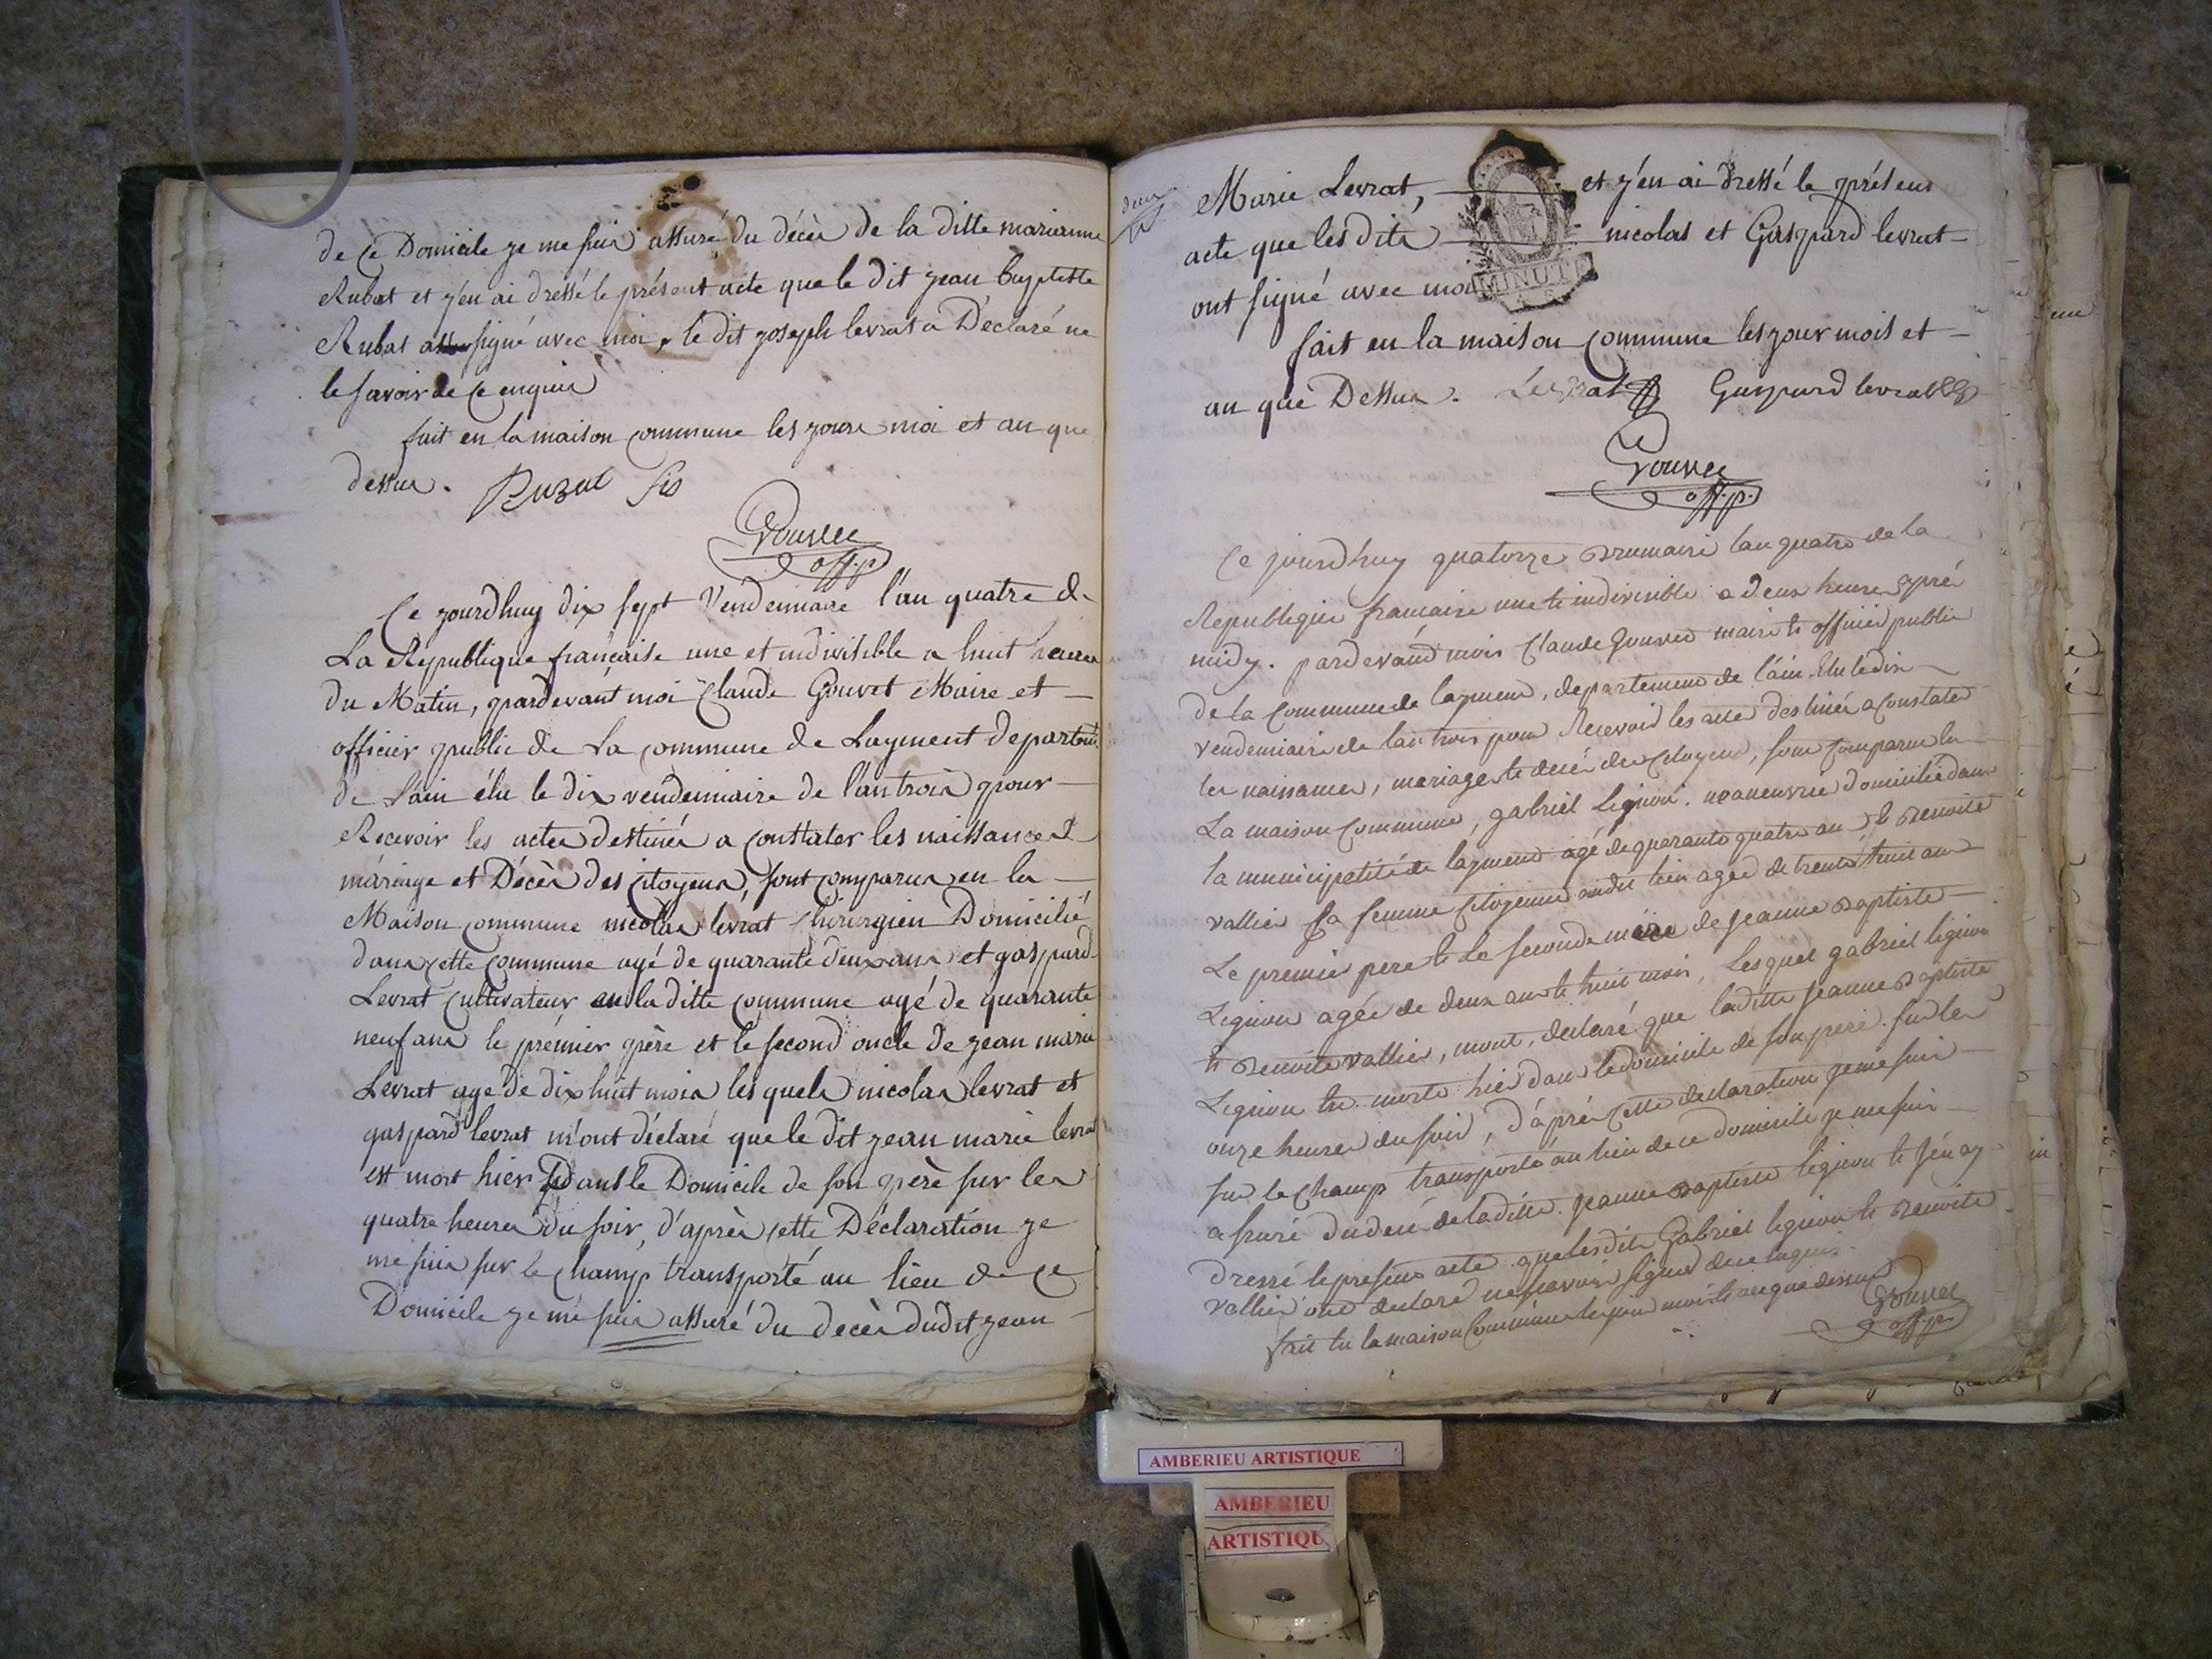 de Ce Domicile je me suis assuré du décès de la ditte marianne
Rubat et j'en ai dressé le présent acte que le dit jean baptiste
Rubat a signé avec moi, le dit joseph levrat a Déclaré ne
le savoir de ce enquis
fait en la maison commune les jours moi et an que
dessus. Ruzut fis
Gouvet
off.p.
Ce jourdhuy dix sept Vendemiaire l'an quatre de
La République française une et indivisible a huit heures
du Matin, pardevant moi Claude Gouvet Maire et
officier public de La commune de Layment departemt
de L'ain élu le dix vendemiaire de l'an trois pour
Recevoir les actes destinés a constater les naissances
mariage et Décès des citoyens, sont comparus en la
Maison commune nicolas levrat Chirurgien Domicilié
dans cette commune agé de quarante deux ans et gaspard
Levrat cultivateur en la ditte commune agé de quarante
neuf ans le prémier père et le second oncle de jean marie
Levrat age de dix huit mois les quels nicolas levrat et
gaspard levrat m'ont déclaré que le dit jean marie levrat
est mort hier Dans le Domicile de son père sur les
quatre heures du soir, d'après cette Déclaration je
me suis sur le champ transporté au lieu de ce
Domicile je me suis assuré du decès dudit jean
deux
Marie Levrat, et j'en ai dressé le présens
acte que les dits nicolas et Gaspard levrat
ont signé avec moi
MINUTE
fait en la maison commune les jour mois et
an que Dessus. Levrat Gaspard levrat
Gouvet
off.p.
Ce jourdhuy quatorze Brumaire lan quatre de la
Republique francaise une et indivisible a deux heures apré
midy. pardevand mois Claude Gouvet maire et officié public
de la Commune de laymend, departemend de l'ain Elu le dix
vendemiaire de lan trois pour Recevoir les acte destinés a Constater
les naissances, mariages et decés des Citoyens, sont Comparus en
La maison Commune, gabriel Legnion. manouvrié domicilié dans
la municipalité de laymend agé de quarante quatre an et Benoite
vallier sa femme Citoyenne audit lieu agée de trente huit ans
Le premier pere et La seconde mère de jeanne Baptiste
Legnion agée de deux ans et huit mois, Lesquel gabriel legnion
et Benoite vallier, mont, declaré que laditte jeanne Baptiste
Legnion est morte hier dans le domicile de son pere sur les
onze heures du soir, d'aprés Cette declaration je me suis
sur le champ transporté au lieu de ce domicile je me suis
assuré du decé de laditte. jeanne Baptiste legnion et jén ay
dressé le presens acte que lesdits Gabriel legnion et Benoite
vallier ont declaré ne savoir signer de ce enquis
fait en la maison Commune les jour mois et an que dessus
Gouvet
off.p.
AMBERIEU ARTISTIQUE
AMBERIEU
ARTISTIQU